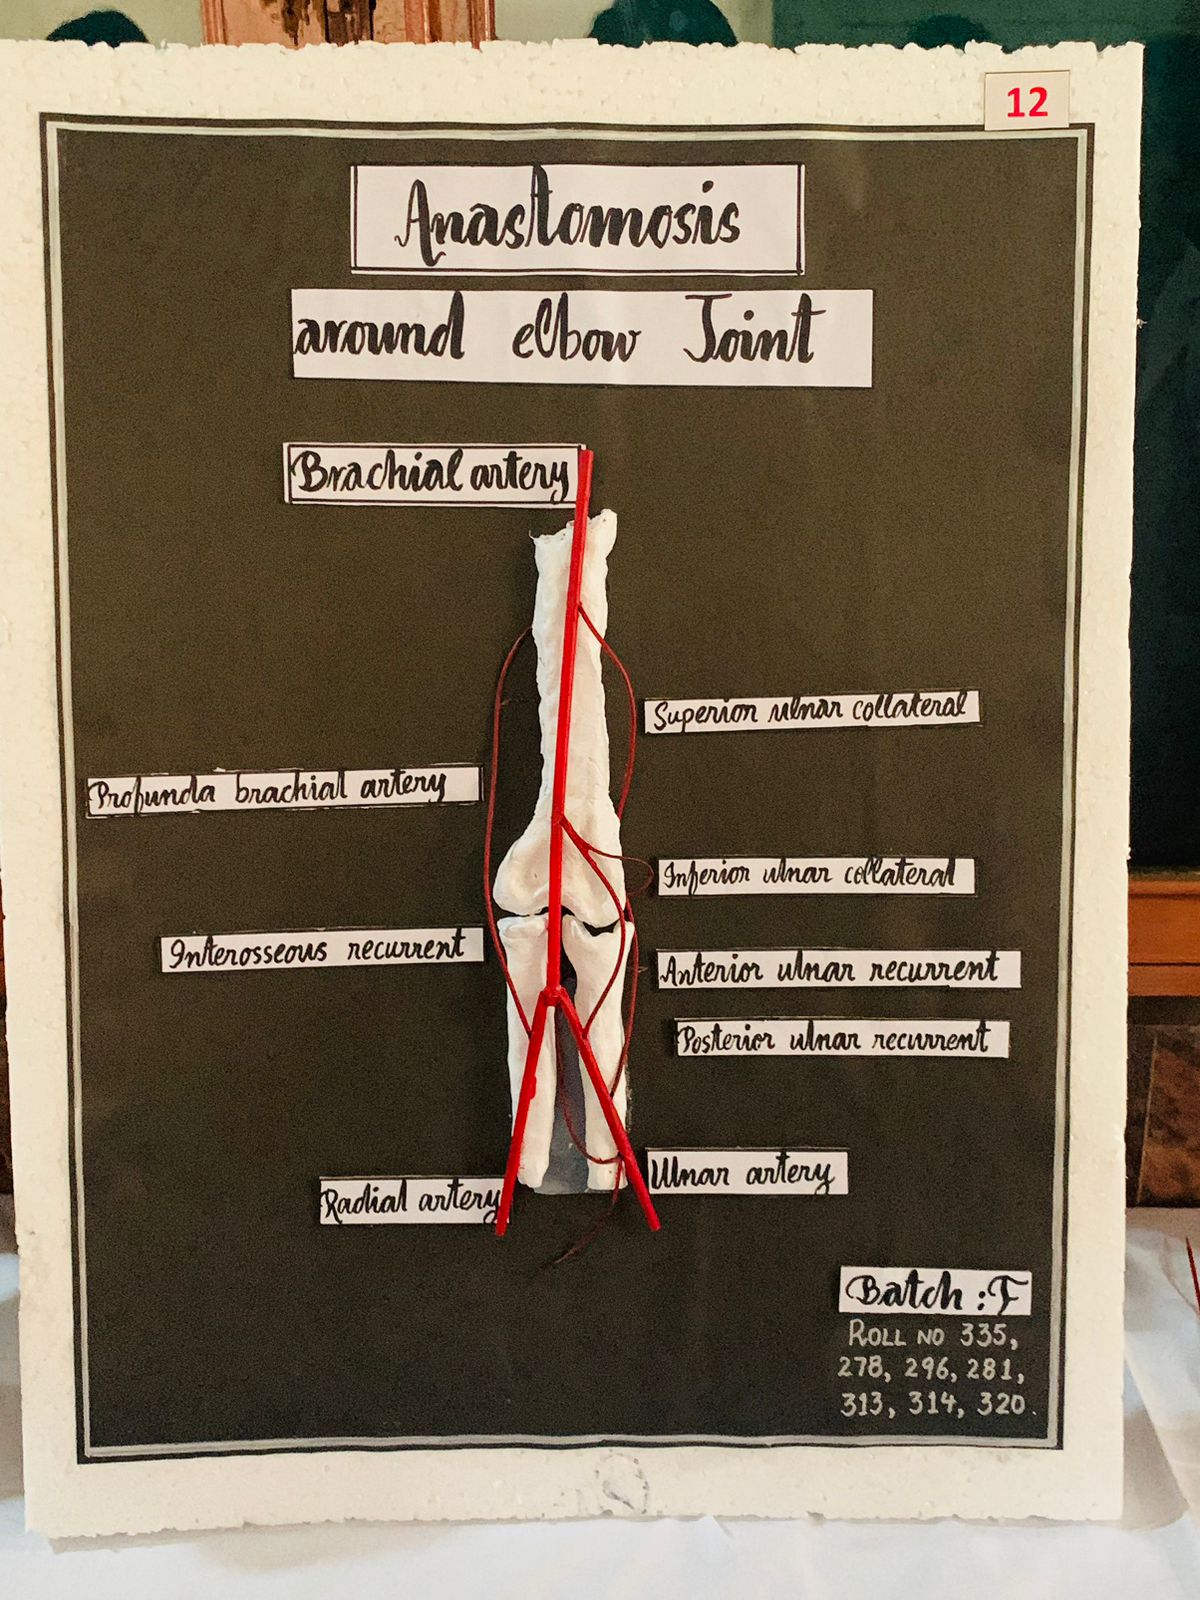 12
Anastomosis
around elbow Joint
Brachial artery
Superior ulnar collateral
Profunda brachial artery
Inferior ulnar collateral
Interosseous recurrent
Anterior ulnar recurrent
Posterior ulnar recurrent
Ulnar artery
Radial artery
Batch : F
ROLL NO 335,
278, 296, 281,
313, 314, 320.